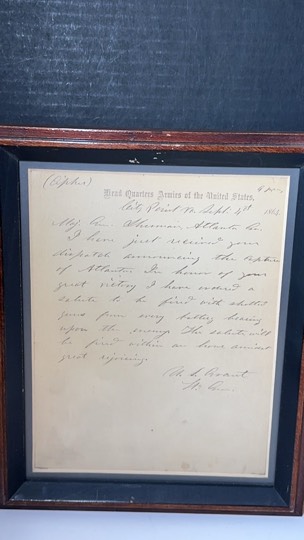 (Cipher)
Head Quarters Armies of the United States,
City Point Va Sept. 4th 1864
Maj. Gen. Sherman Atlanta Ga.
I have just received your
dispatch announcing the capture
of Atlanta. In honor of your
great victory I have ordered a
salute to be fired with shotted
guns from every battery bearing
upon the enemy. The salute will
be fired within an hour amidst
great rejoicing
U. S. Grant
Lt. Gen.